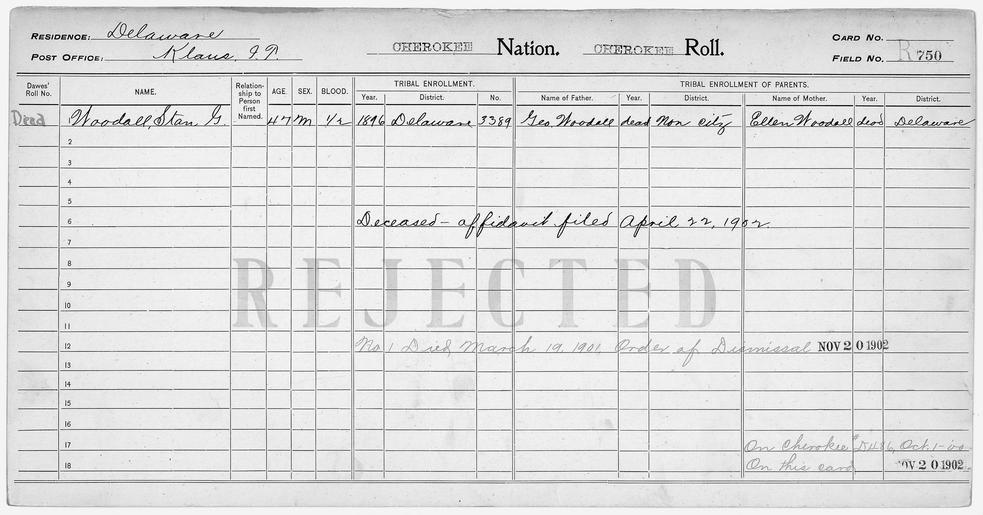 RESIDENCE: Delaware
POST OFFICE: Klaus, I.T.
CHEROKEE Nation. CHEROKEE Roll.
CARD NO.
FIELD NO. R 750
Dawes' Roll No.
NAME.
Relationship to Person first Named.
AGE.
SEX.
BLOOD.
TRIBAL ENROLLMENT.
Year. District. No.
TRIBAL ENROLLMENT OF PARENTS.
Name of Father. Year. District. Name of Mother. Year. District.
Dead 1 Woodall, Stan G. 47 M 1/2 1896 Delaware 3389 Geo. Woodall dead Non City Ellen Woodall dead Delaware
2
3
4
5
6 Deceased - affidavit filed April 22, 1902.
7
8
9
REJECTED
10
11
12 No 1 Died March 19, 1901, Order of Dismissal NOV 20 1902
13
14
15
16
17 On Cherokee D486, Oct. 1-00
18 On this card NOV 20 1902